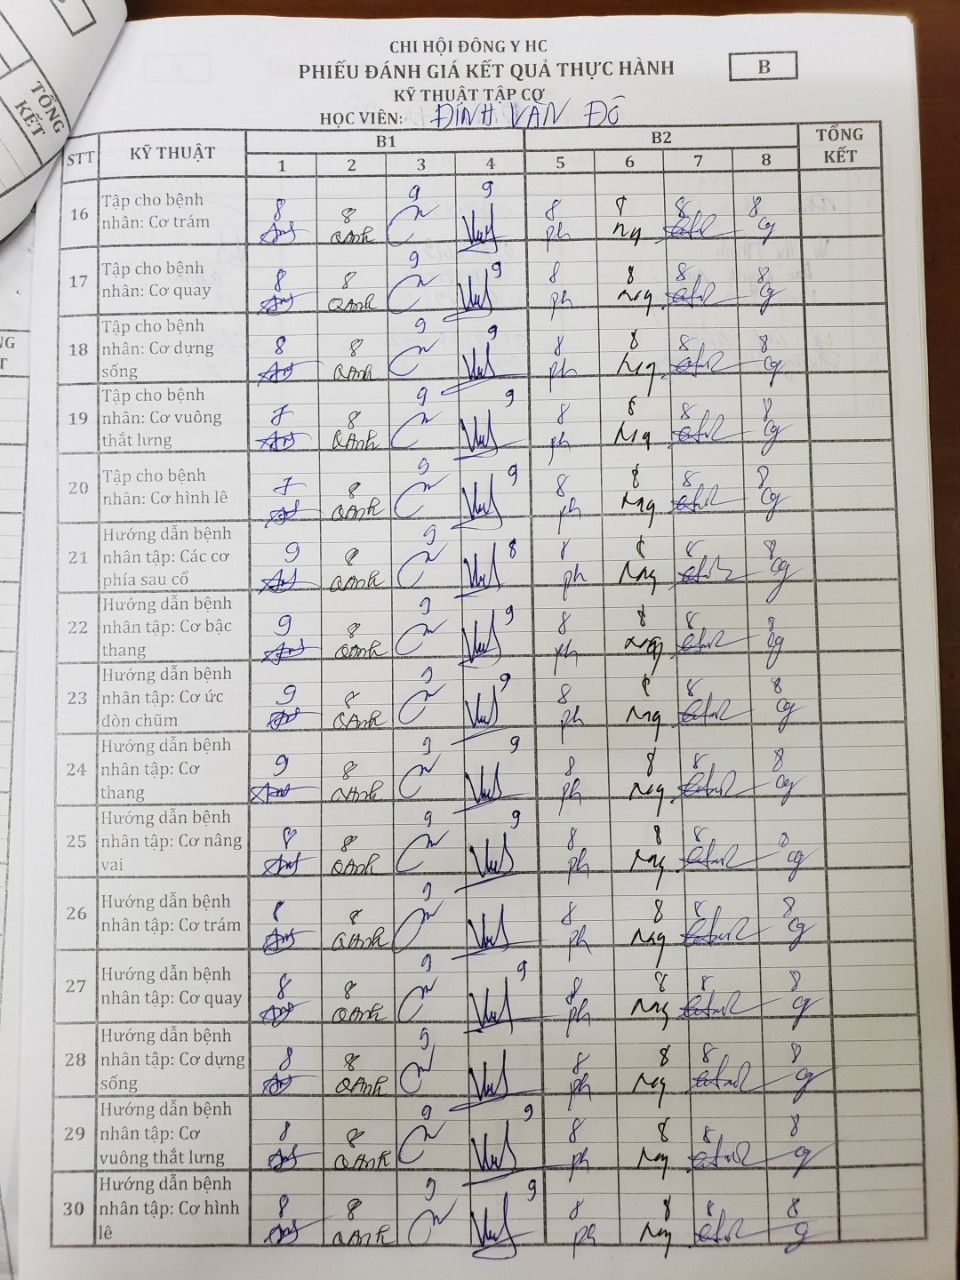 TỔNG
KẾT
CHI HỘI ĐÔNG Y HC
PHIẾU ĐÁNH GIÁ KẾT QUẢ THỰC HÀNH
B
KỸ THUẬT TẬP CƠ
HỌC VIÊN: ĐINH VĂN ĐÔ
STT KỸ THUẬT B1 B2 TỔNG KẾT
1 2 3 4 5 6 7 8
16 Tập cho bệnh nhân: Cơ trám 8 8 9 9 8 8 8 8
QAnh ph Ng
17 Tập cho bệnh nhân: Cơ quay 8 8 9 9 8 8 8 8
QAnh ph Ng
18 Tập cho bệnh nhân: Cơ dựng sống 8 8 9 9 8 8 8 8
QAnh ph Ng
19 Tập cho bệnh nhân: Cơ vuông thắt lưng 7 8 9 9 8 8 8 8
QAnh ph Ng
20 Tập cho bệnh nhân: Cơ hình lê 7 8 9 9 8 8 8 8
QAnh ph Ng
21 Hướng dẫn bệnh nhân tập: Các cơ phía sau cổ 9 8 9 8 8 8 8 8
QAnh ph Ng
22 Hướng dẫn bệnh nhân tập: Cơ bậc thang 9 8 9 9 8 8 8 8
QAnh ph Ng
23 Hướng dẫn bệnh nhân tập: Cơ ức đòn chũm 9 8 9 9 8 8 8 8
QAnh ph Ng
24 Hướng dẫn bệnh nhân tập: Cơ thang 9 8 9 9 8 8 8 8
QAnh ph Ng
25 Hướng dẫn bệnh nhân tập: Cơ nâng vai 8 8 9 9 8 8 8 8
QAnh ph Ng
26 Hướng dẫn bệnh nhân tập: Cơ trám 8 8 9 9 8 8 8 8
QAnh ph Ng
27 Hướng dẫn bệnh nhân tập: Cơ quay 8 8 9 9 8 8 8 8
QAnh ph Ng
28 Hướng dẫn bệnh nhân tập: Cơ dựng sống 8 8 9 9 8 8 8 8
QAnh ph Ng
29 Hướng dẫn bệnh nhân tập: Cơ vuông thắt lưng 8 8 9 9 8 8 8 8
QAnh ph Ng
30 Hướng dẫn bệnh nhân tập: Cơ hình lê 8 8 9 9 8 8 8 8
QAnh ph Ng